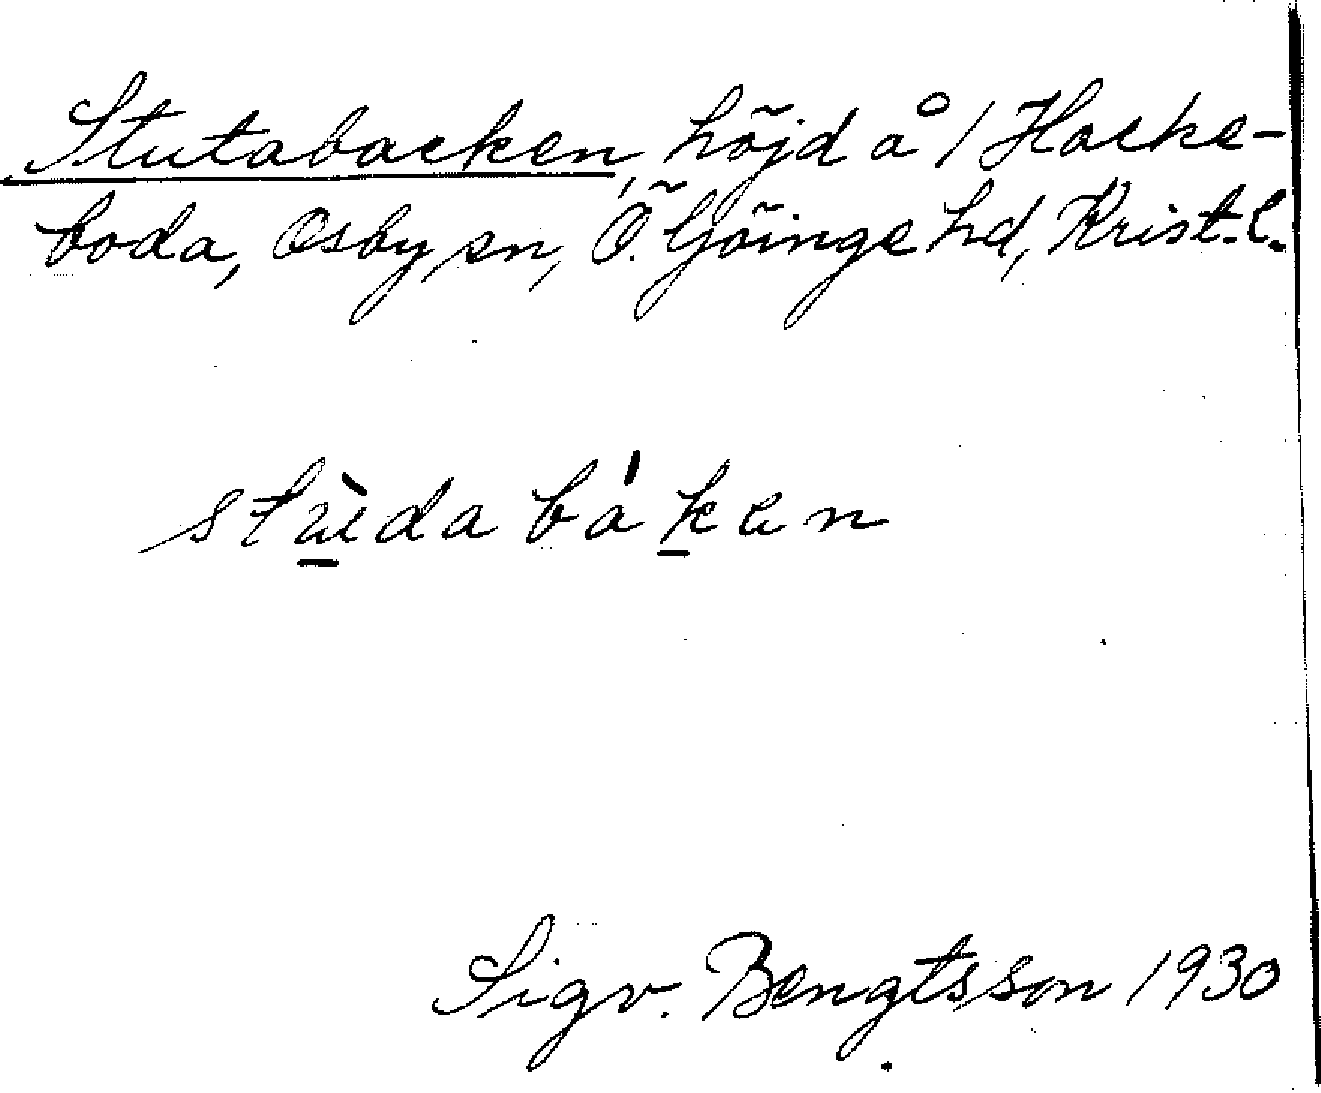 Stutabacken, höjd å 1 Hacke-
boda, Osby sn, Ö. Göinge hd, Krist. l.
stù̱da báḵen
Sigv. Bengtsson 1930